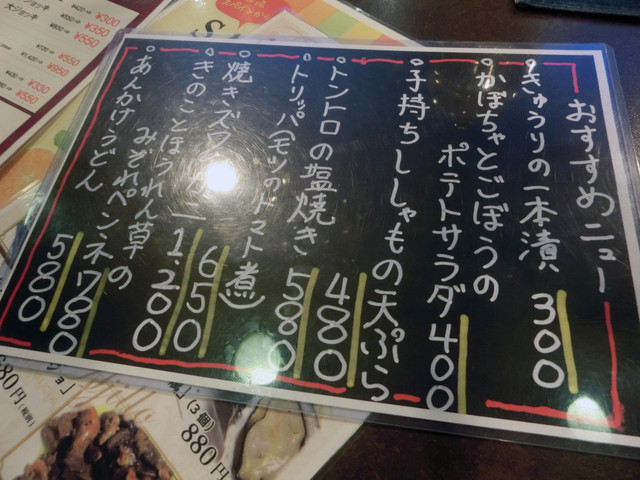 おすすめニュー
きゅうりの一本漬 300
かぼちゃとごぼうの
ポテトサラダ 400
子持ちししゃもの天ぷら 480
トントロの塩焼き 580
トリッパ(モツのトマト煮) 650
焼きズワイガニ 1.200
きのことほうれん草の
みぞれペンネ 780
あんかけうどん 580
大ジョッキ
¥300
¥350
¥550
¥550
¥850
¥330
¥550
580円(税別)
(3個)
880円